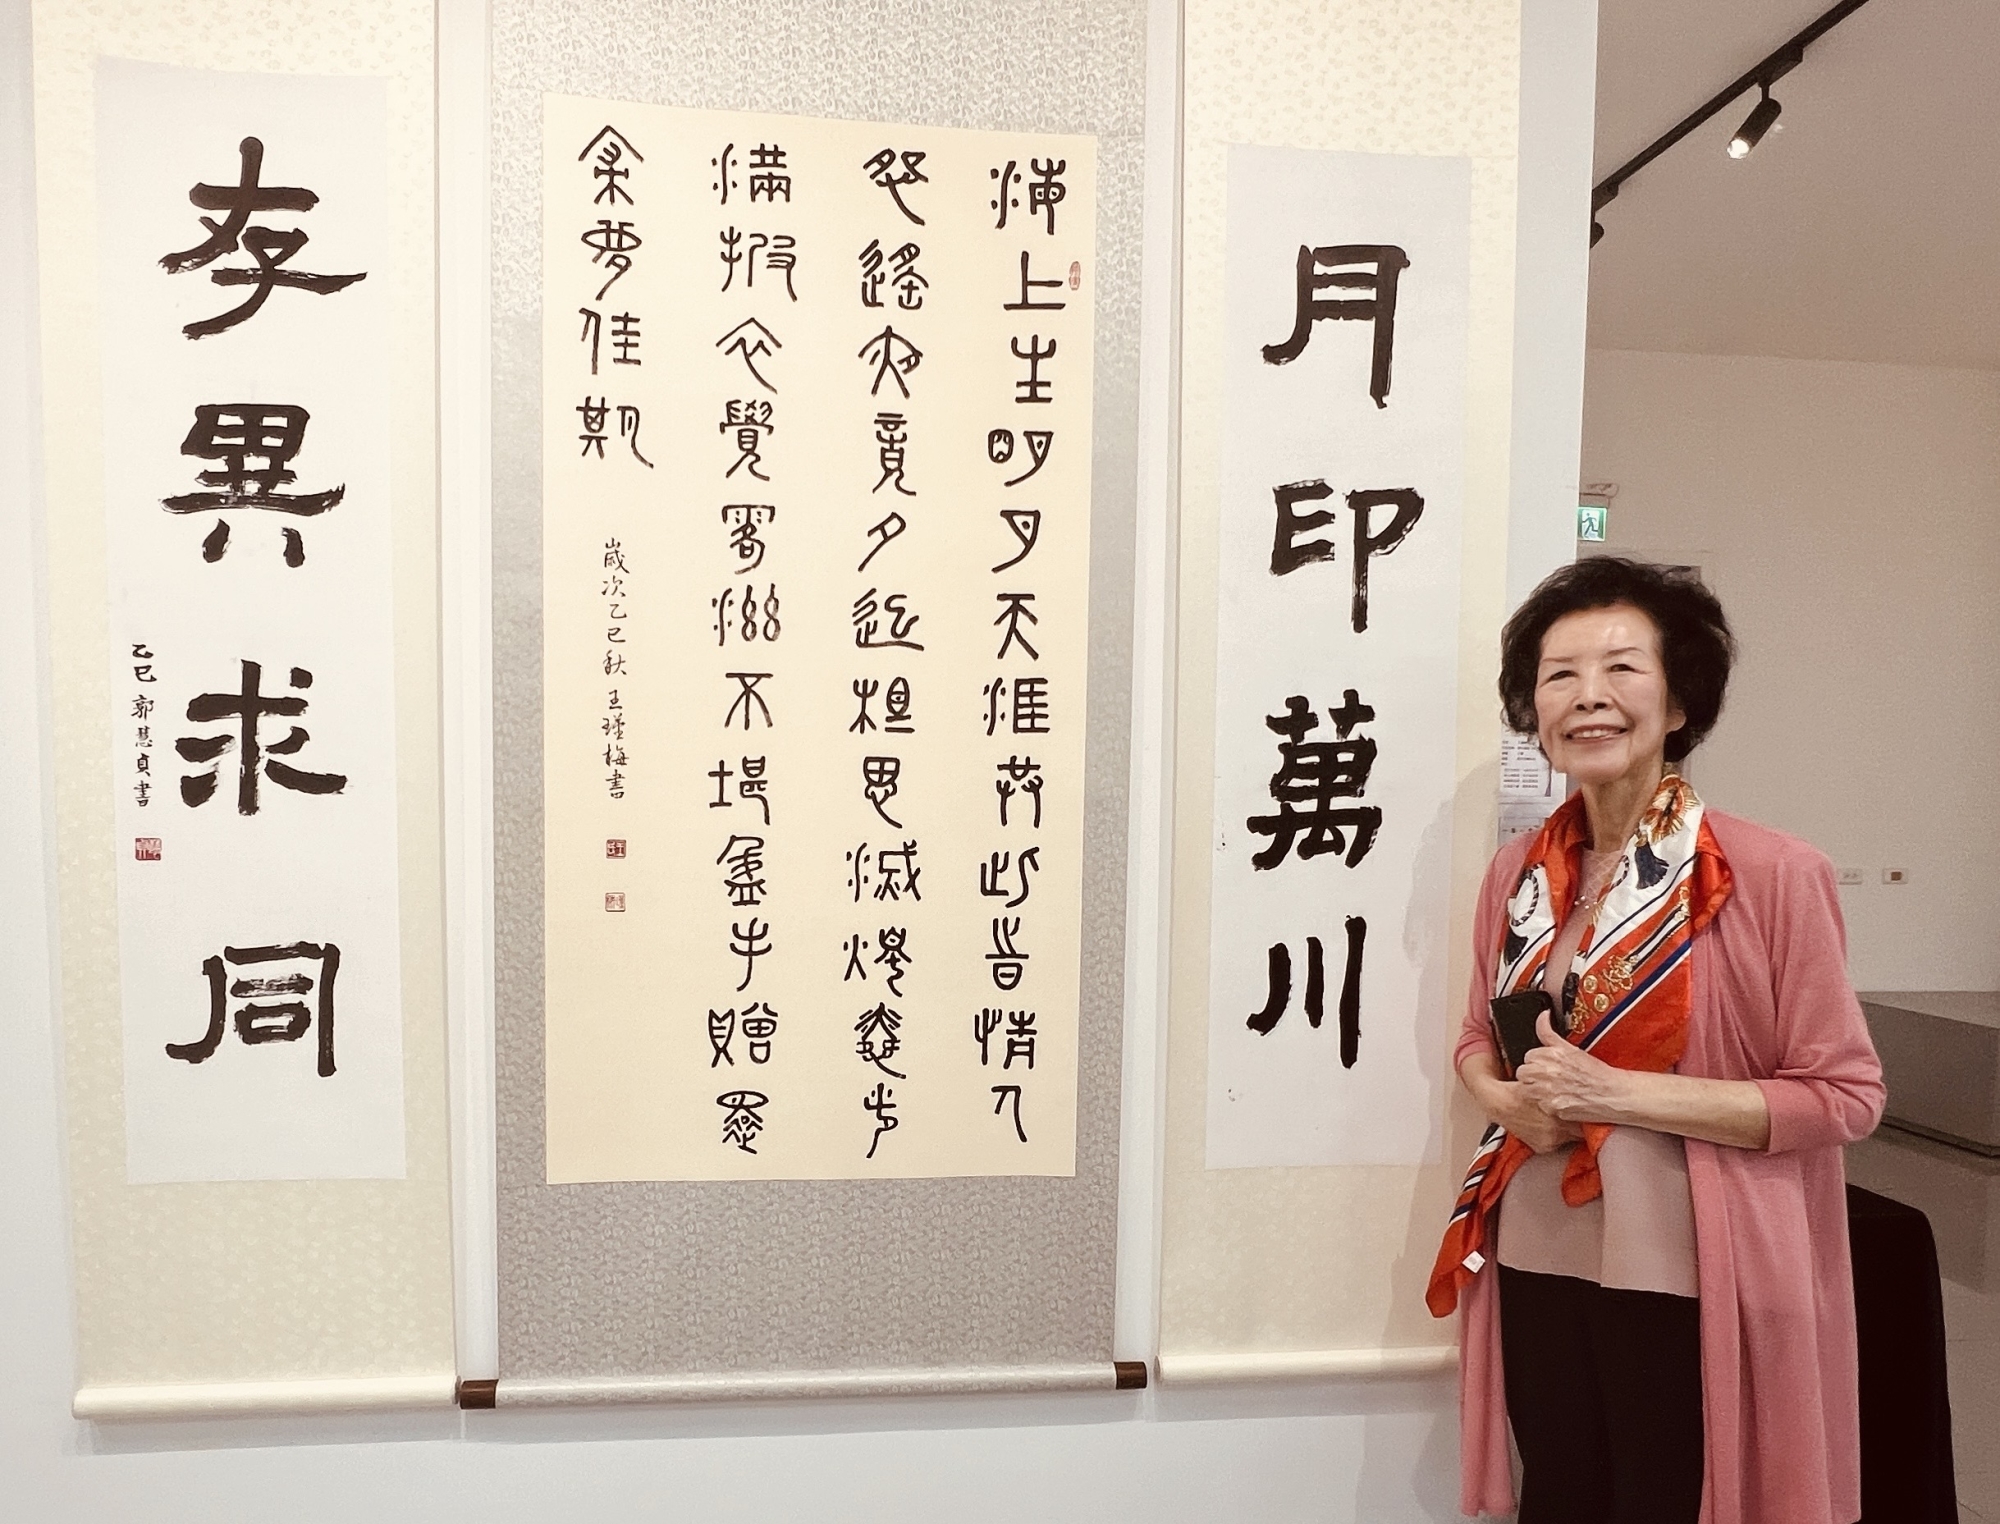 月印萬川
海上生明月天涯共此時情人
怨遙夜竟夕起相思滅燭憐光
滿披衣覺露滋不堪盈手贈還
寢夢佳期
歲次乙巳秋 王瑾梅書
存異求同
乙巳 郭慧貞書